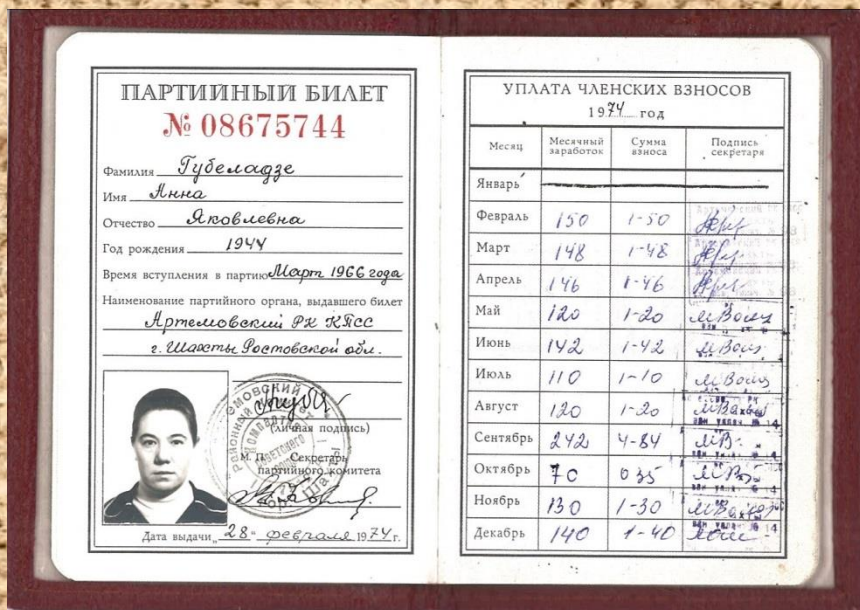 ПАРТИЙНЫЙ БИЛЕТ
№ 08675744
Фамилия Губеладзе
Имя Анна
Отчество Яковлевна
Год рождения 1944
Время вступления в партию Март 1966 года
Наименование партийного органа, выдавшего билет
Артемовский РК КПСС
г. Шахты Ростовской обл.
(личная подпись)
М. П. Секретарь
партийного комитета
Дата выдачи „28" февраля 1974 г.
УПЛАТА ЧЛЕНСКИХ ВЗНОСОВ
1974 год
Месяц Месячный заработок Сумма взноса Подпись секретаря
Январь
Февраль 150 1-50
Март 148 1-48
Апрель 146 1-46
Май 120 1-20
Июнь 142 1-42
Июль 110 1-10
Август 120 1-20
Сентябрь 242 4-84
Октябрь 70 0 35
Ноябрь 130 1-30
Декабрь 140 1-40